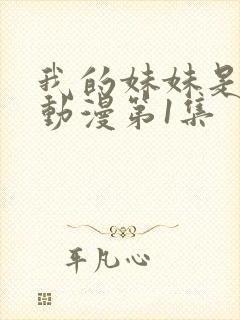 我的妹妹是
動漫第1集
平凡心